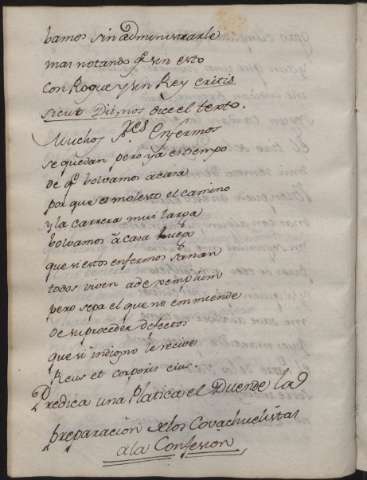 bamos sin administrarle
mas notando q.e sin esto
con Roque y sin Rey eritis
sicut Dijnos dice el texto.
Muchos s.res Enfermos
se quedan pero ya es tiempo
de q.e bolvamos a casa
por que es molesto el camino
y la carrera mui larga
bolvamos à casa luego
que si estos enfermos sanan
todos viven ade
pero sepa el que no enmiende
de su proceder defectos
que si indigno le recive
Reus et corporis eius.
Predica una Platica el Duende la
preparacion de los Covachuelistas
a la Confesion